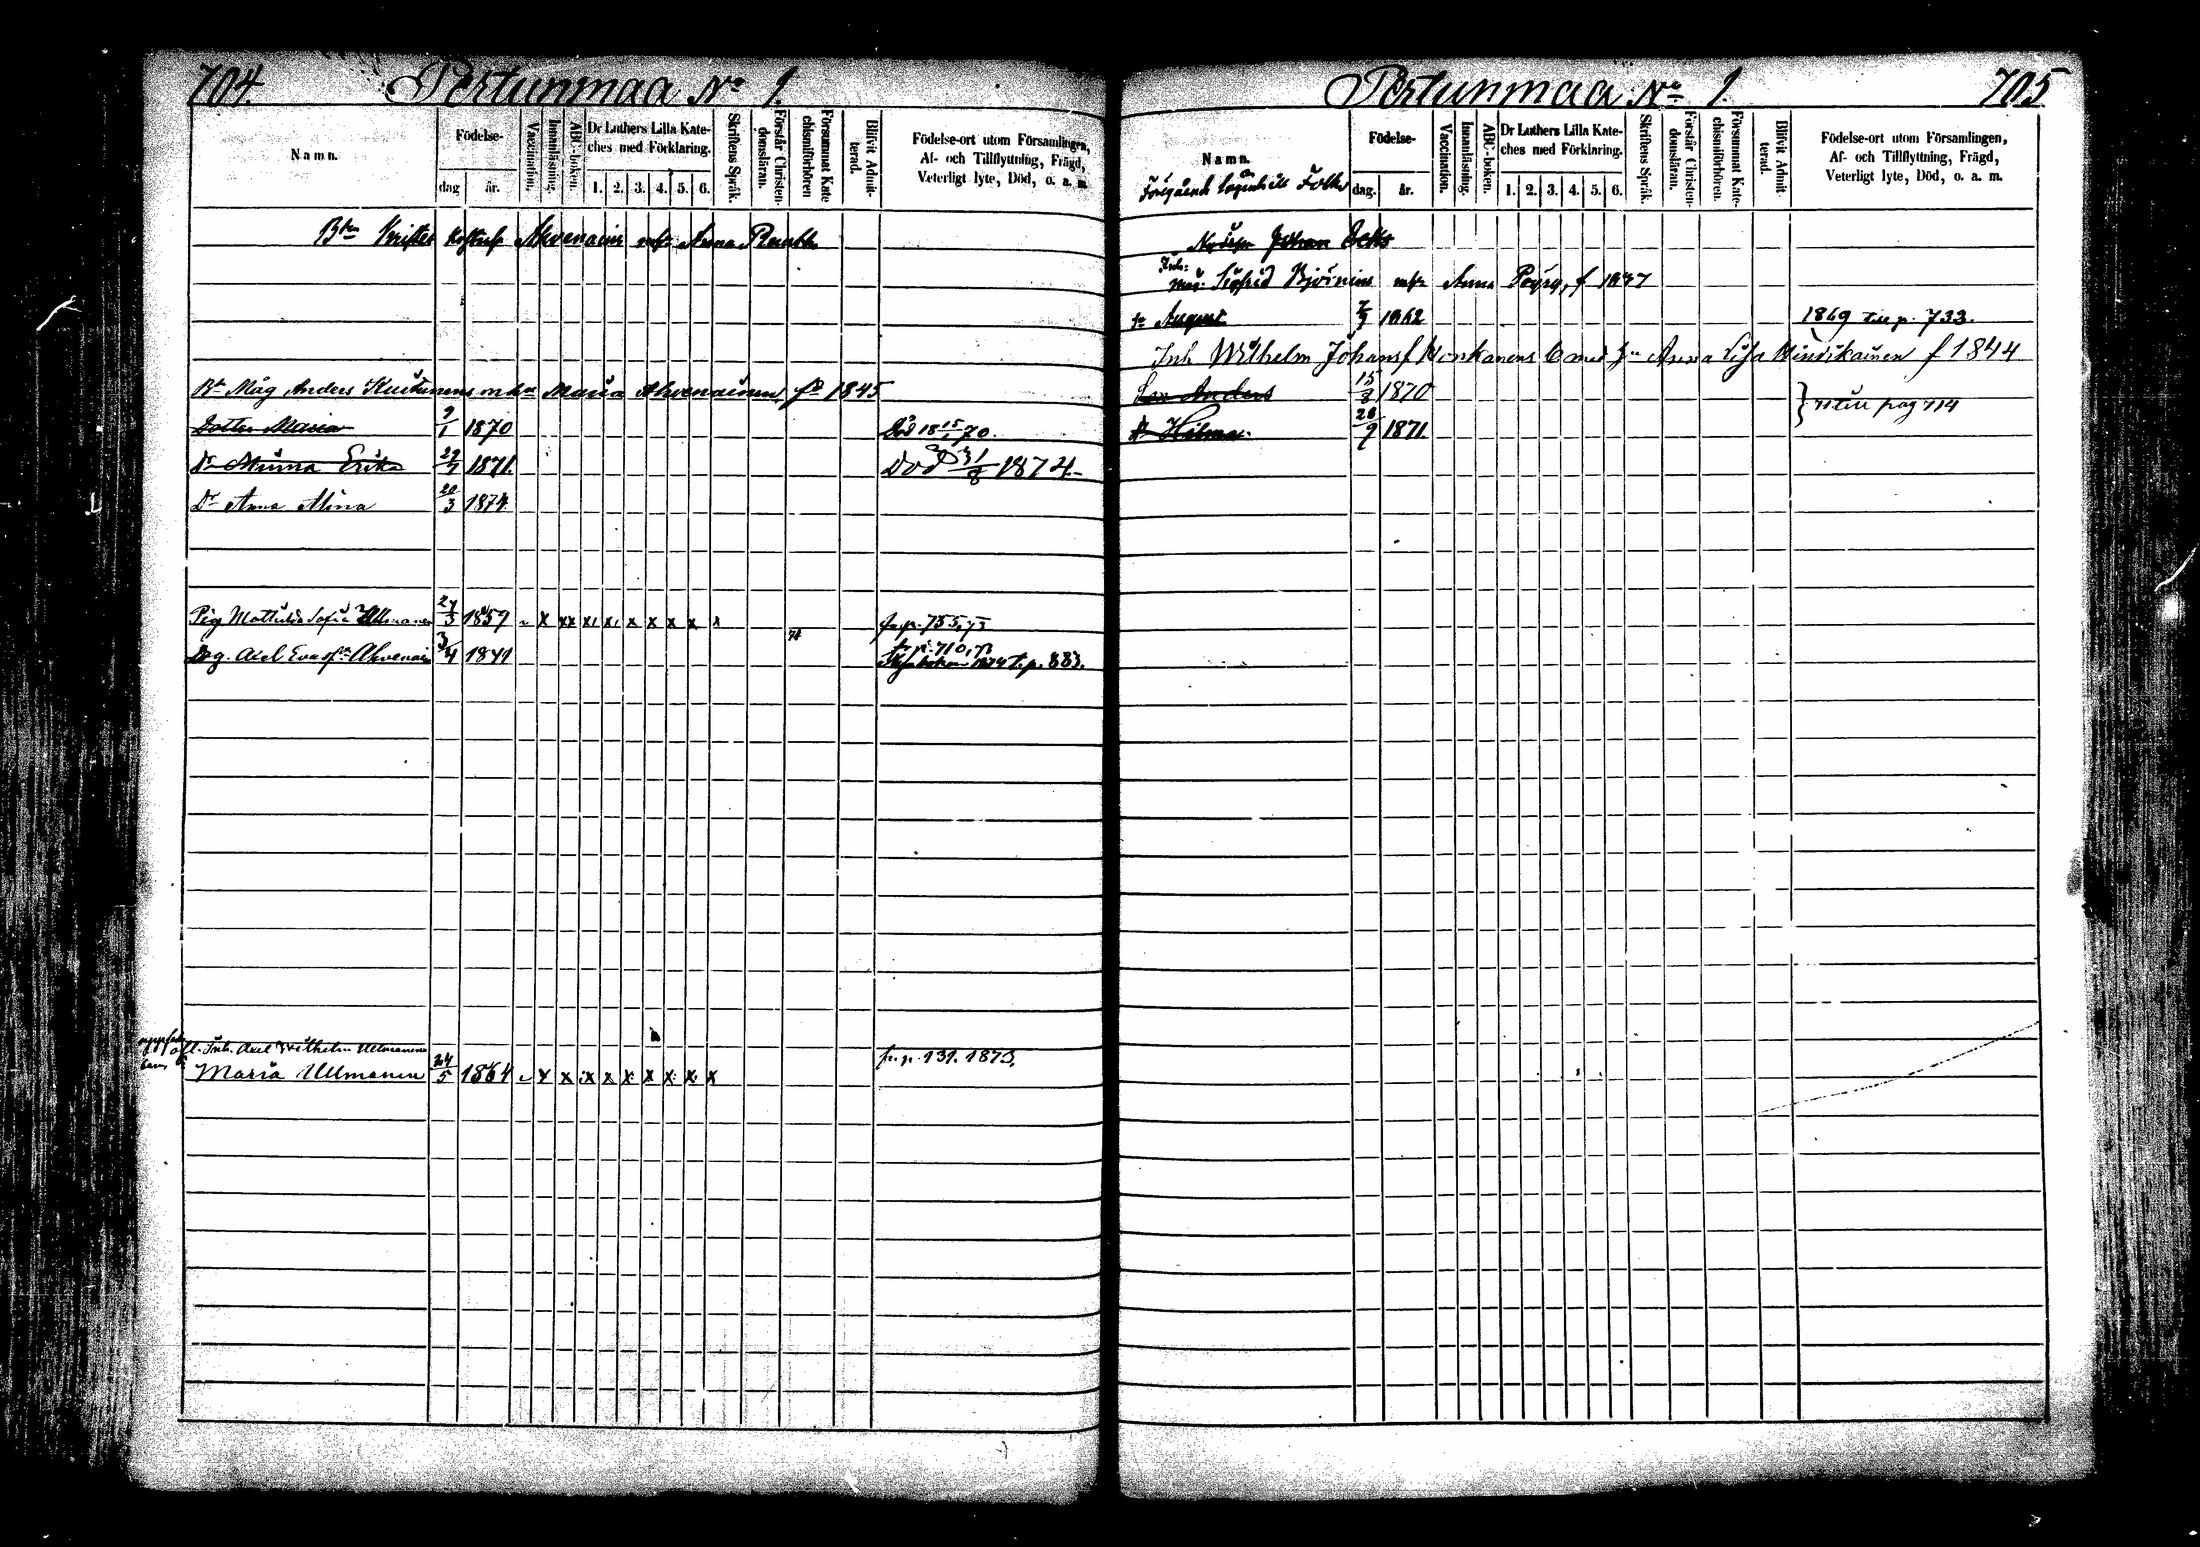 704. Pertunmaa No 1.
Namn.
Födelse-
dag
år.
Vaccination.
Innanläsning.
ABC-boken.
Dr Luthers Lilla Kate-
ches med Förklaring.
1. 2. 3. 4. 5. 6.
Skriftens Språk.
Förstår Christen-
domsläran.
Försummat Kate
chismiförhören
Blifvit Admit-
terad.
Födelse-ort utom Församlingen,
Af- och Tillflyttning, Frägd,
Veterligt lyte, Död, o. a. m.
Ahvenain Anna
Bn Måg Anders Maria Ahvenainen fd 1845
Dotter Maria 9/1 1870 Död 18 15/1 70.
Dr Miina Erika 29/7 1871. Död 31/8 1874.
Dr Anna Miina 20/3 1874
Pig Mathilda Sofia Ullmanen 27/3 1859 x xx x x x x x x x fr. p. 755, 73
Drg. Axel Ahvenain 3/4 1841 74 fr p. 710, 73
1874 t. p. 883.
Inh. Axel Wilhelm Ullmanens
Maria Ullmanen 24/5 1864 x x x x x x x x x fr. p. 131. 1873.
Pertunmaa No 1. 705
Namn.
Föregående Folk
Födelse-
dag.
år.
Vaccination.
Innanläsning.
ABC-boken.
Dr Luthers Lilla Kate-
ches med Förklaring.
1. 2. 3. 4. 5. 6.
Skriftens Språk.
Förstår Christen-
domsläran.
Försummat Kate-
chismiförhören.
Blifvit Admit-
terad.
Födelse-ort utom Församlingen,
Af- och Tillflyttning, Frägd,
Veterligt lyte, Död, o. a. m.
Johan
Inh:
Sigfrid Björninen Anna Pöyry, f 1837
sn August 7/9 1862 1869 till p. 733.
Inh Wilhelm Johansf Anna Lisa f 1844
Son Anders 15/8 1870
71 till pag 714
Dr Hilma 28/9 1871.